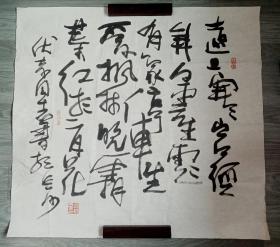 遠上寒山石徑
斜白雲生處
有人家停車坐
愛楓林晚霜
葉紅於二月花
於長沙